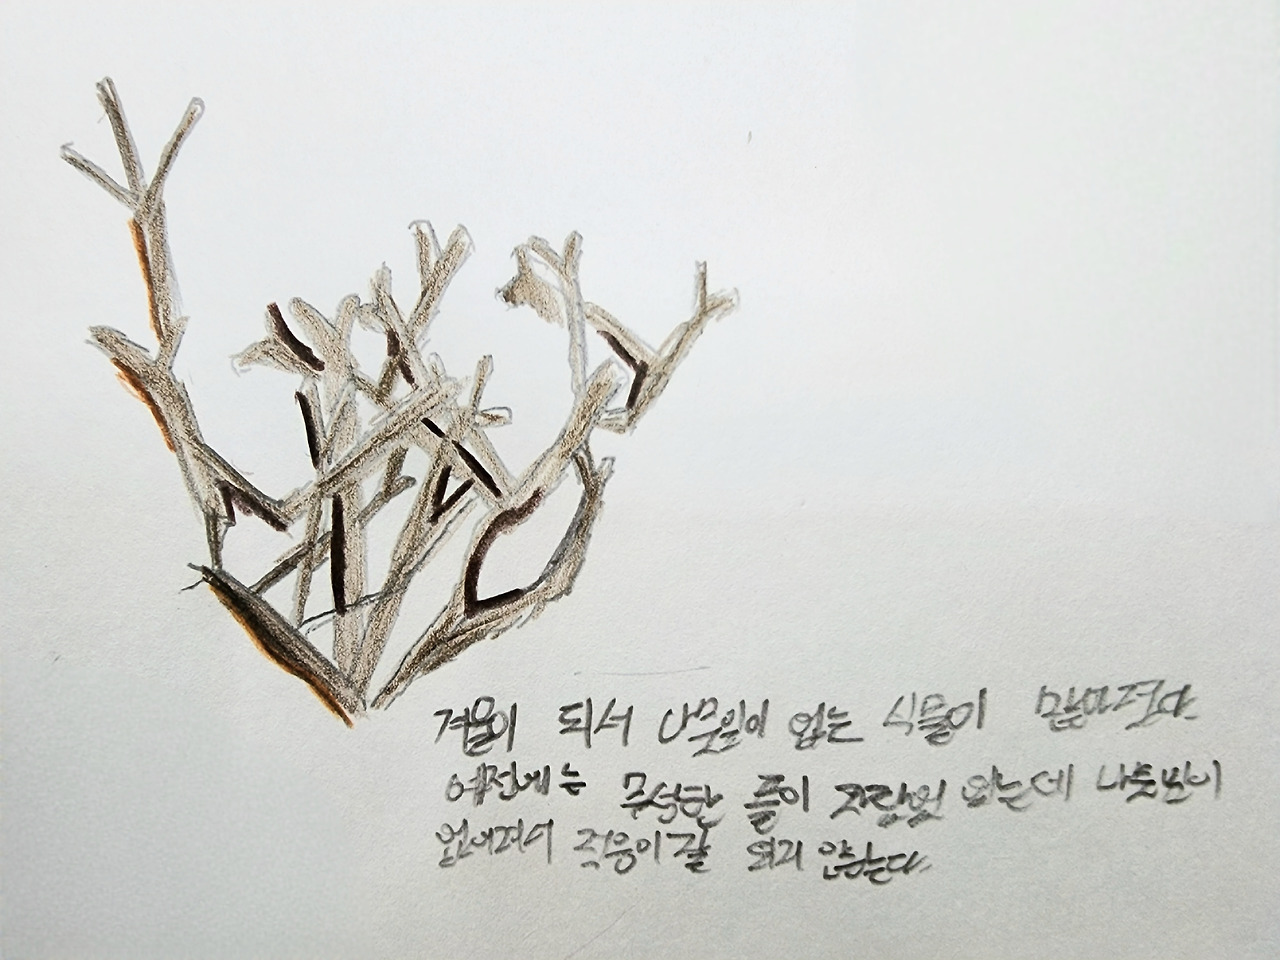 겨울이 되서 나뭇잎이 없는 식물이 많아졌다.
예전에는 무성한 풀이 자랐었는데 나뭇잎이
없어져서 적응이 잘 되지 않는다.